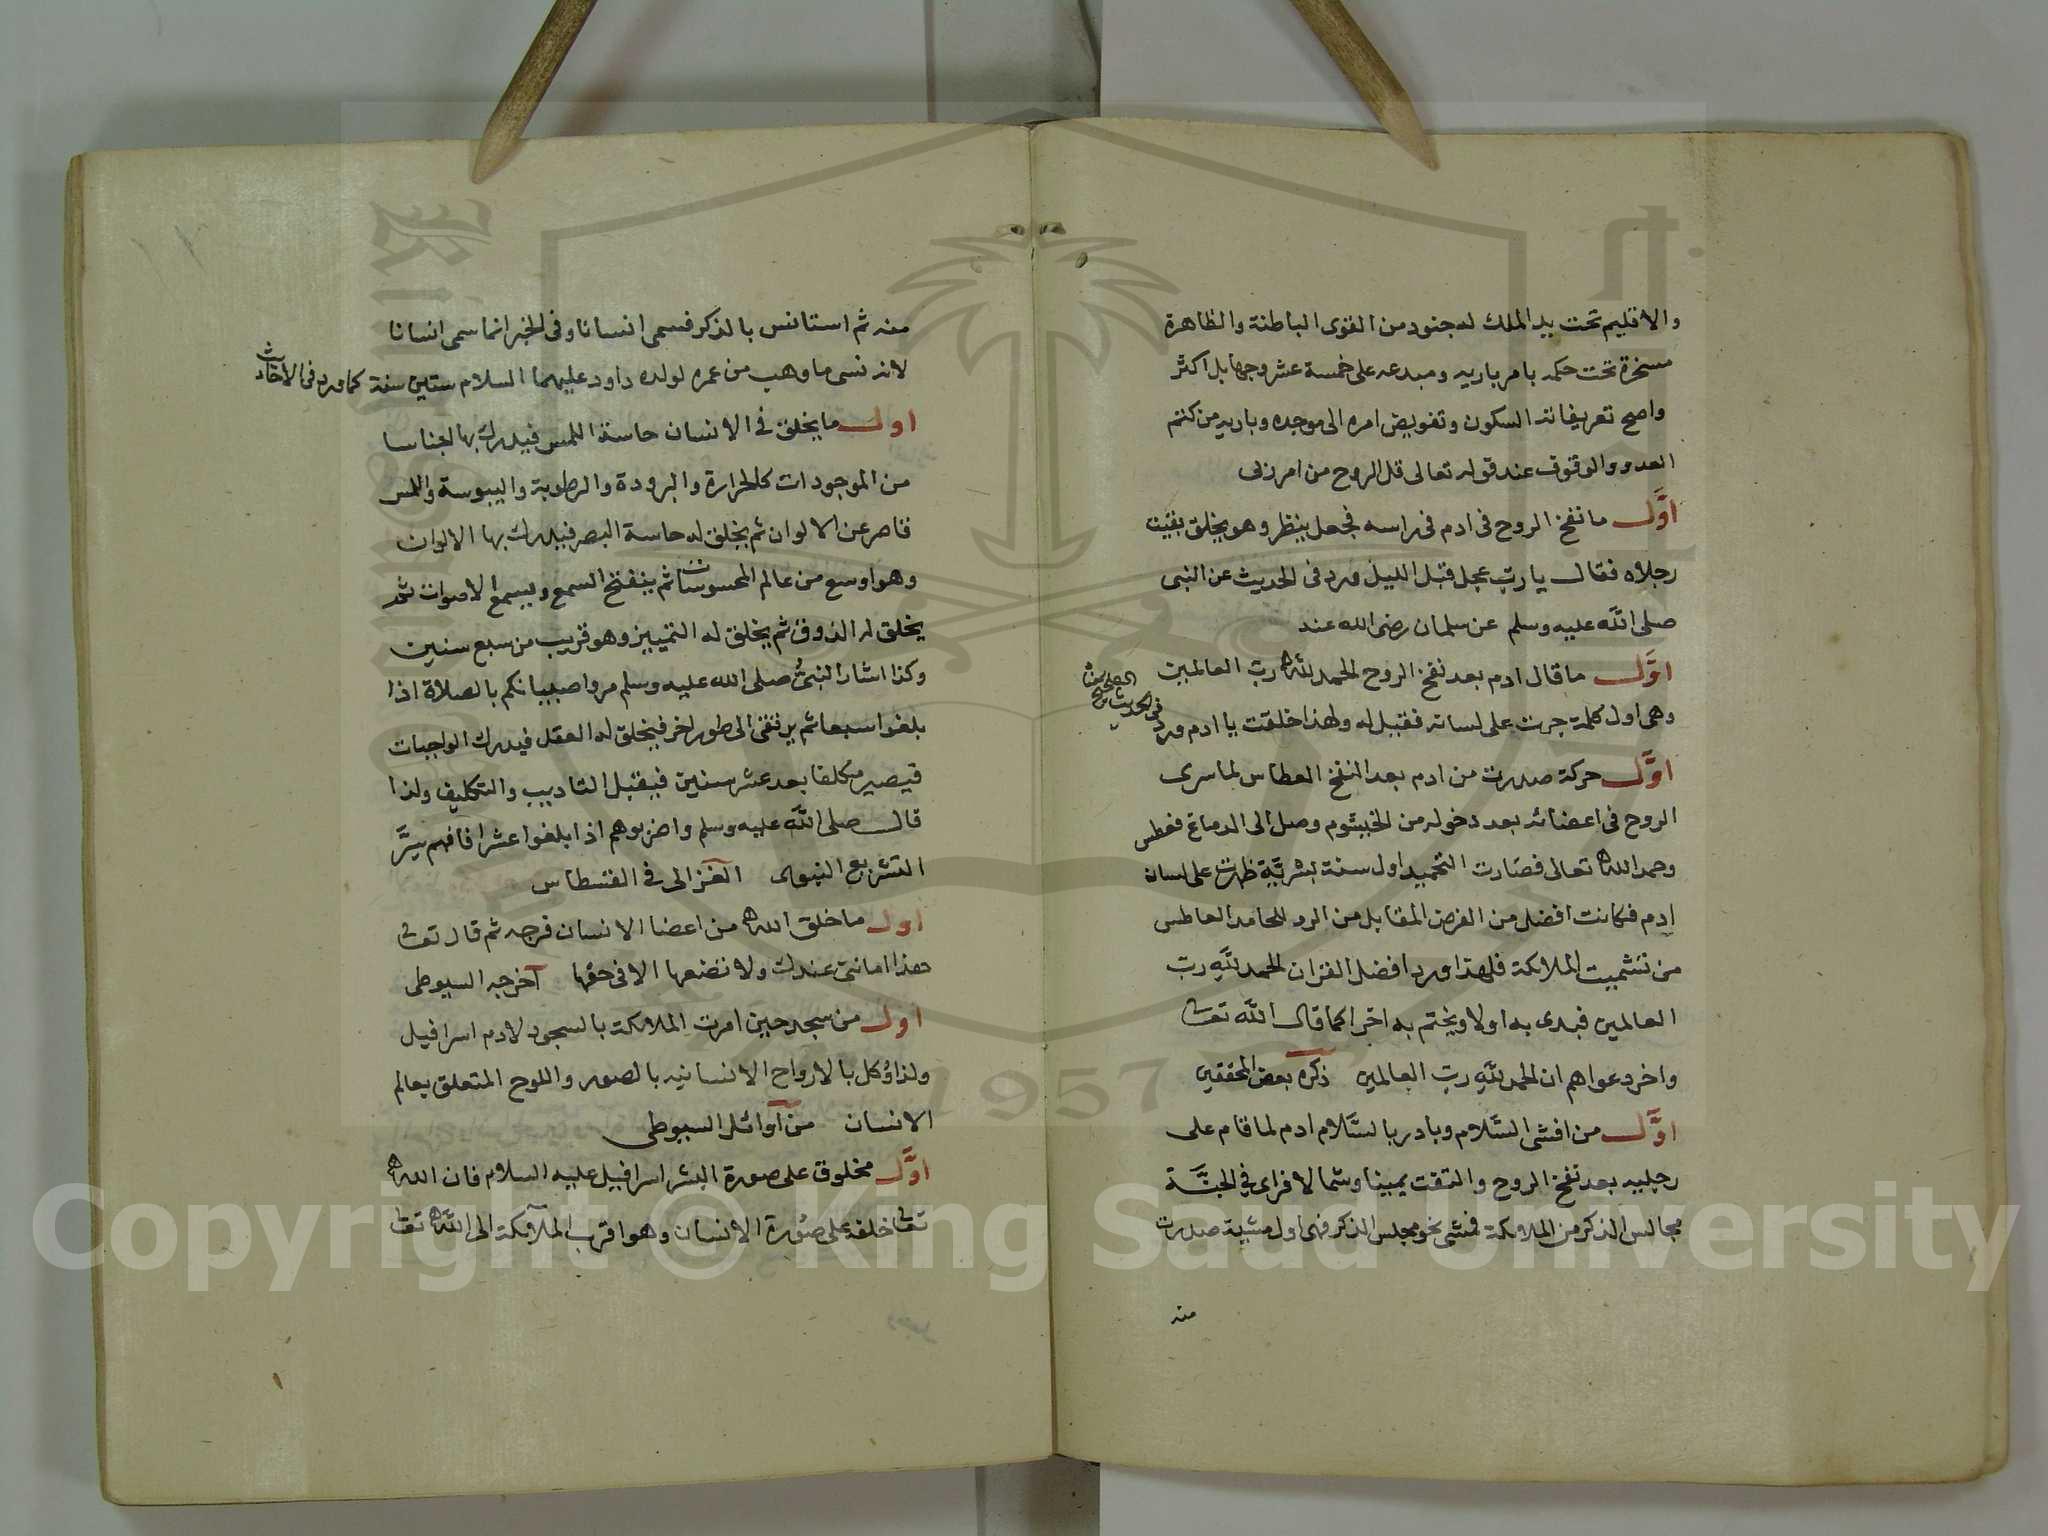 والاقليم تحت يد الملك له جنود من القوى الباطنة والظاهرة
مسخرة تحت حكمه بامر باريه ومبدعه على خمسة عشر وجها بل اكثر
واصح تعريفاته السكون وتفويض امره الى موجده وباريه من كتم
العدم والوقوف عند قوله تعالى قل الروح من امر ربى
اوَّل ما نفخ الروح فى ادم فى راسه فجعل ينظر وهو يخلق بقيت
رجلاه فقال يا رب عجل قبل الليل ورد فى الحديث عن النبى
صلى الله عليه وسلم عن سلمان رضى الله عنه
اوَّل ما قال ادم بعد نفخ الروح الحمد لله رب العالمين
وهى اول كلمة جرت على لسانه فقيل له ولهذا خلقت يا ادم ورد
فى الحديث
اوَّل حركة صدرت من ادم بعد النفخ العطاس لما سرى
الروح فى اعضائه بعد دخوله من الخيشوم وصل الى الدماغ فعطس
وحمد الله تعالى فصارت التحميد اول سنة بشريَّة ظهرت على لسان
ادم فكانت افضل من الفرض المقابل من الرد للحامد العاطس
من تشميت الملائكة فلهذا ورد افضل القران الحمد لله رب
العالمين فبدى به اولا ويختم به اخرا كما قال الله تعا
واخر دعواهم ان الحمد لله رب العالمين ذكره بعض المحققين
اوَّل من افشى السَّلام وبادر بالسَّلام ادم لما قام على
رجليه بعد نفخ الروح والتفت يمينا وشمالا فراى فى الجنَّة
مجالس الذكر من الملائكة فمشى نحو مجلس الذكر فهى اول مشية صدرت
منه
منه ثم استانس بالذكر فسمى انسانا وفى الخبر انما سمى انسانا
لانه نسى ما وهب من عمره لولده داود عليهما السلام ستين سنة كما ورد فى الاحاديث
اول ما يخلق فى الانسان حاسة اللمس فيدرك بها اجناسا
من الموجودات كالحرارة والبرودة والرطوبة واليبوسة واللمس
قاصر عن الالوان ثم يخلق له حاسة البصر فيدرك بها الالوان
وهو اوسع من عالم المحسوسات ثم ينفتح السمع ويسمع الاصوات ثم
يخلق له الذوق ثم يخلق له التمييز وهو قريب من سبع سنين
وكذا اشار النبىُّ صلى الله عليه وسلم مروا صبيانكم بالصلاة اذا
بلغوا سبعا ثم يرتقى الى طور اخر فيخلق له العقل فيدرك الواجبات
فيصير مكلفا بعد عشر سنين فيقبل التاديب والتكليف ولذا
قال صلى الله عليه وسلم واضربوهم اذا بلغوا عشرا فافهم سِرَّ
التشريع النبوى الغزالى فى القسطاس
اول ما خلق الله من اعضا الانسان فرجه ثم قال تعا
هذا امانتى عندك ولا تضعها الا فى حقها اخرجه السيوطى
اول من سجد حين امرت الملائكة بالسجود لادم اسرافيل
ولذا وُكل بالارواح الانسانيه بالصور واللوح المتعلق بعالم
الانسان من اوائل السيوطى
اوَّل مخلوق على صورة البشر اسرافيل عليه السلام فان الله
تعا خلقه على صُورة الانسان وهو اقرب الملائكة الى الله تعا
1957
Copyright © King Saud University